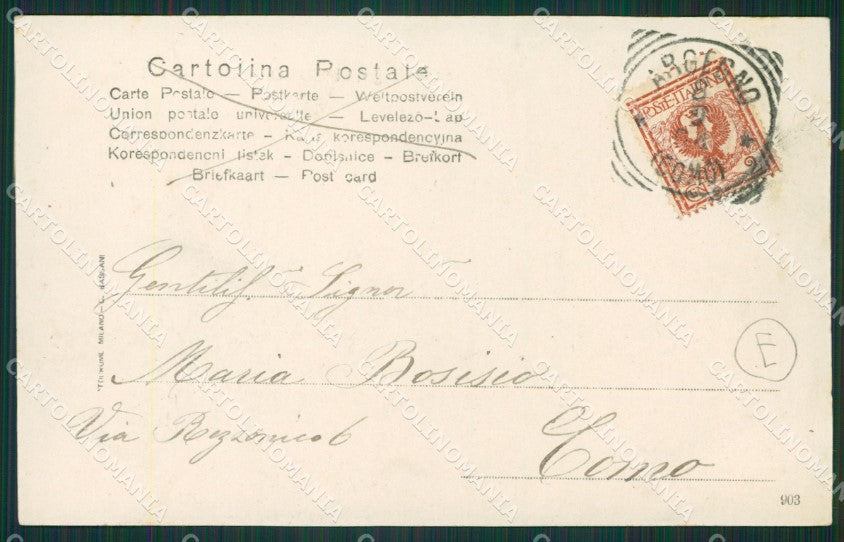 Cartolina Postale
Carte Postale — Postkarte — Weltpostverein
Union postale universelle — Levelező-Lap
Correspondenzkarte — Karta korespondencyjna
Korespondencni listek — Dopisnice — Brefkort
Briefkaart — Post card
ARGEGNO
(COMO)
POSTE ITALIANE
Gentilif.ma Signora
Maria Bosisio
Via Rezzonico 6
Como
E
MILANO - C. BASSANI
903
CARTOLINOMANIA